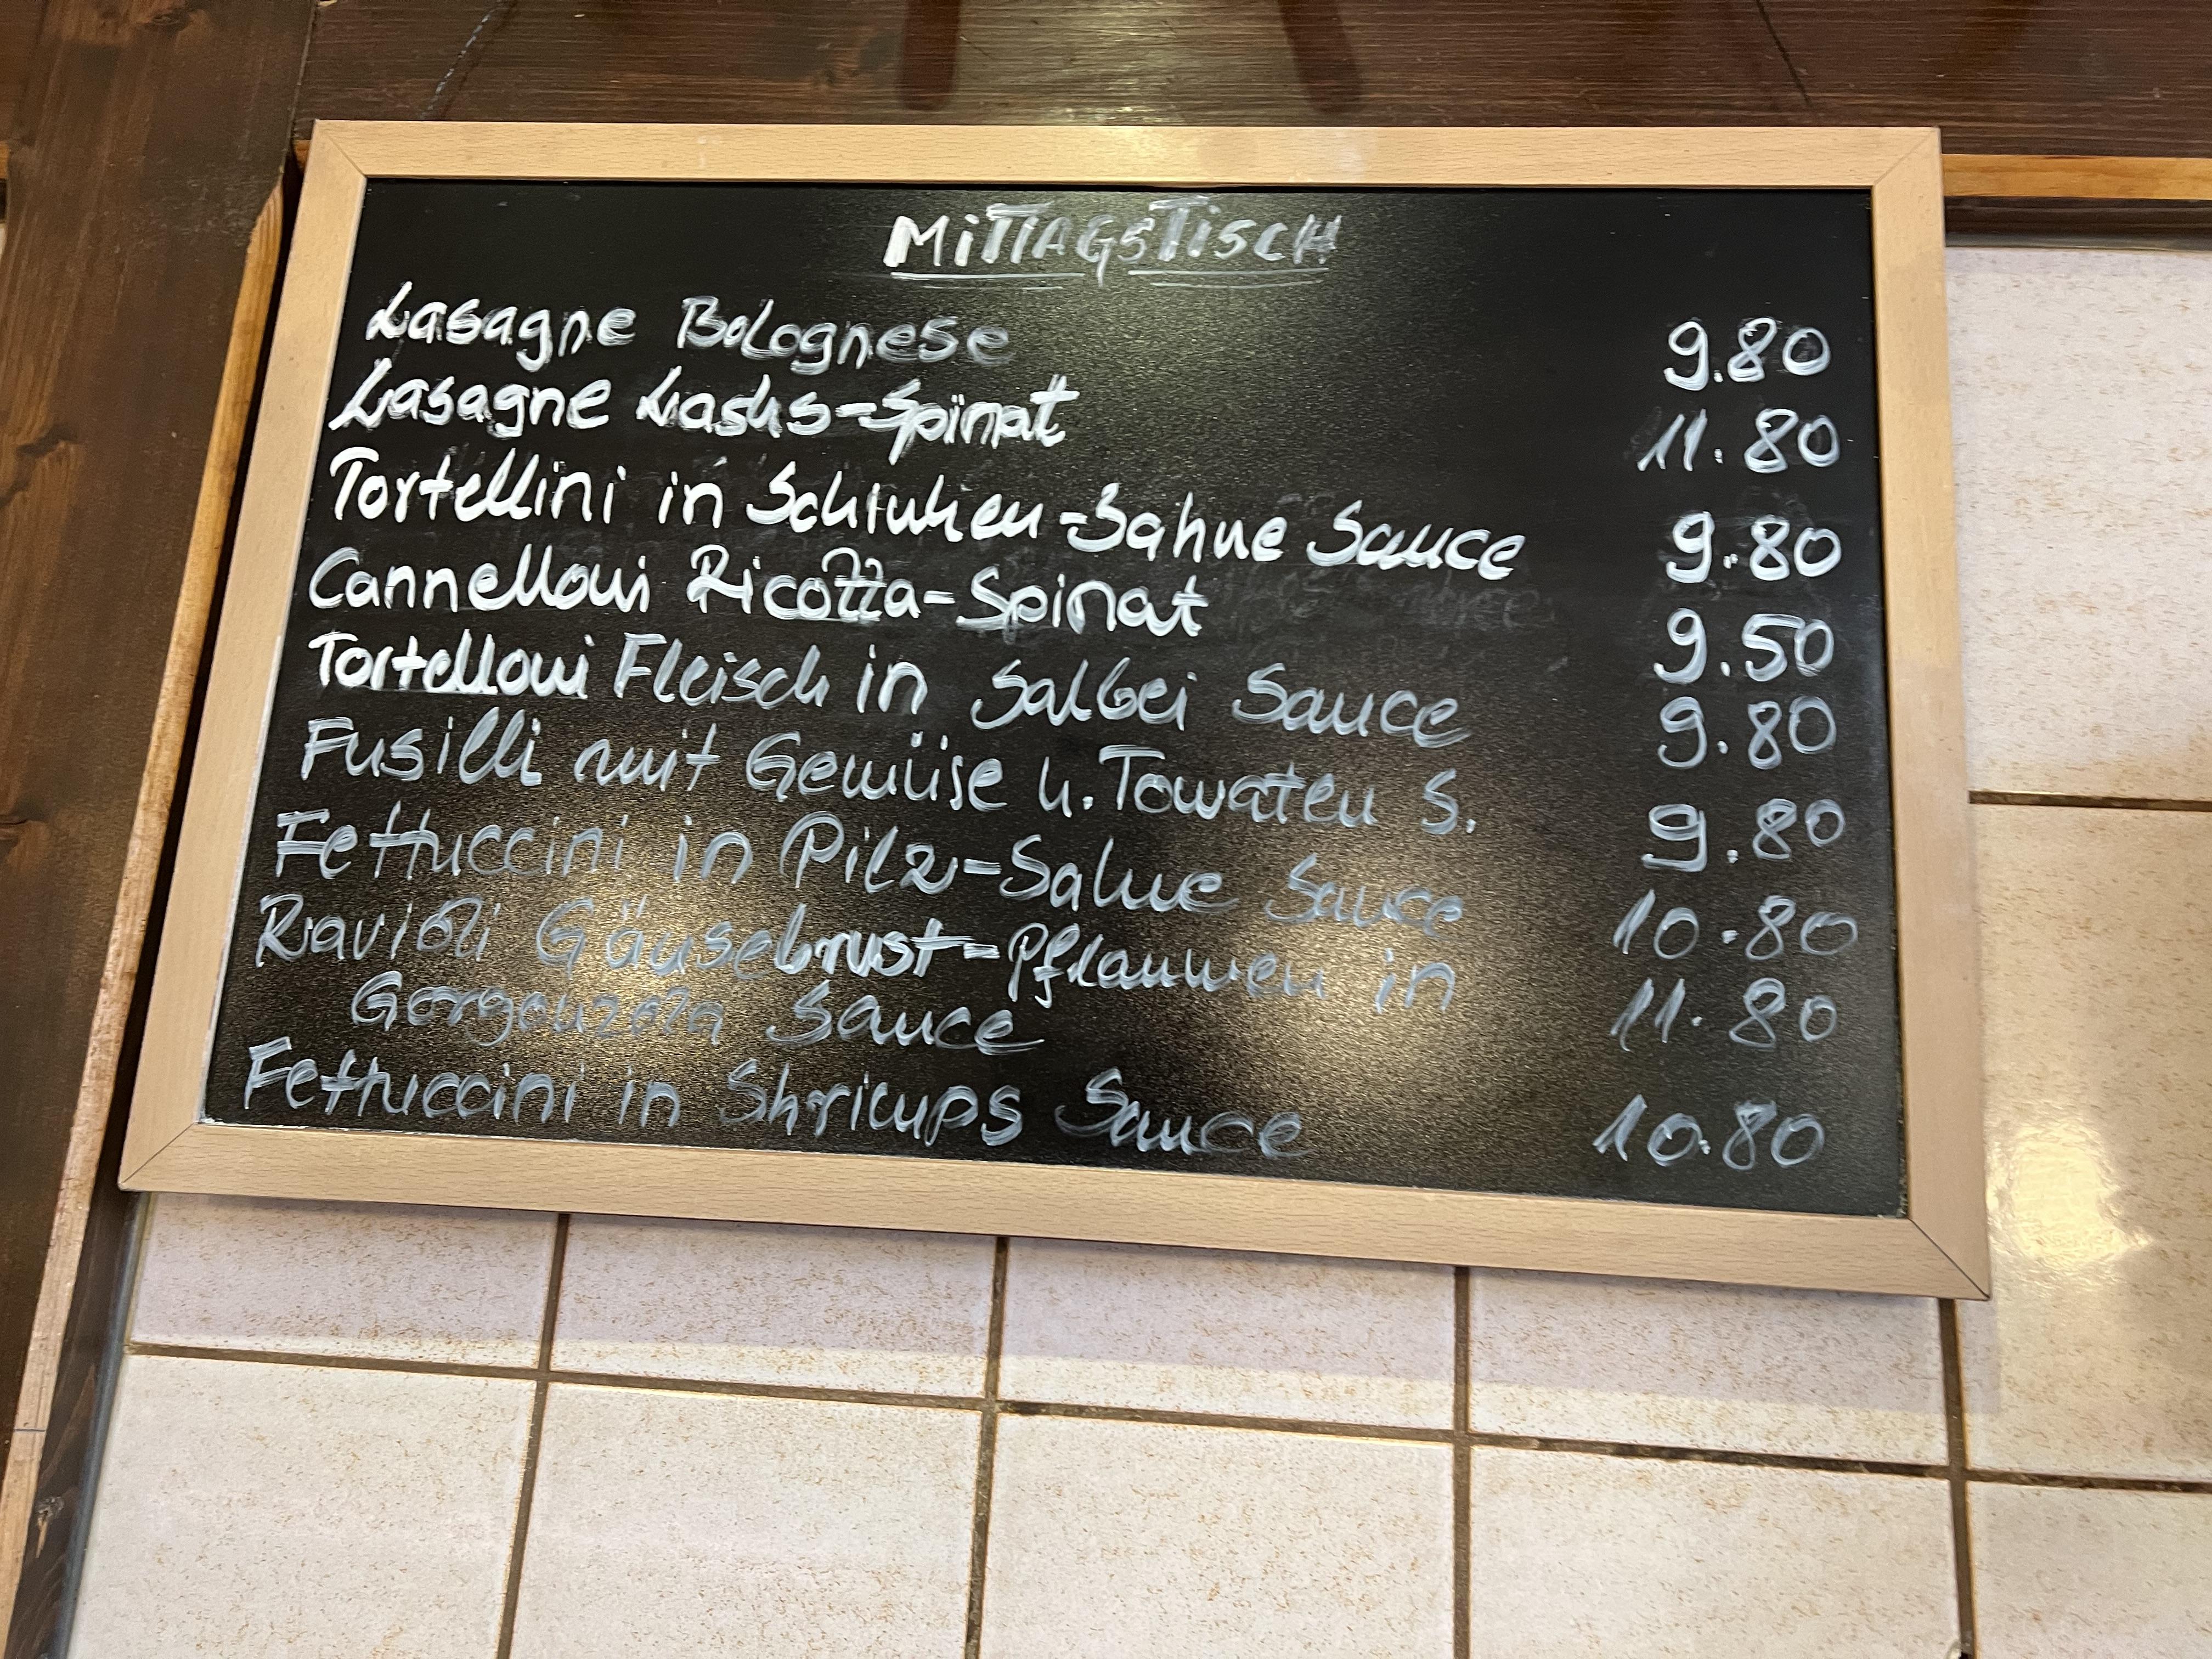 MITTAGSTISCH
Lasagne Bolognese 9.80
Lasagne Lachs-Spinat 11.80
Tortellini in Schinken-Sahne Sauce 9.80
Cannelloni Ricotta-Spinat 9.50
Tortelloni Fleisch in Salbei Sauce 9.80
Fusilli mit Gemüse u. Tomaten S. 9.80
Fettuccini in Pilz-Sahne Sauce 10.80
Ravioli Gänsebrust-Pflaumen in 11.80
Gorgonzola Sauce
Fettuccini in Shrimps Sauce 10.80